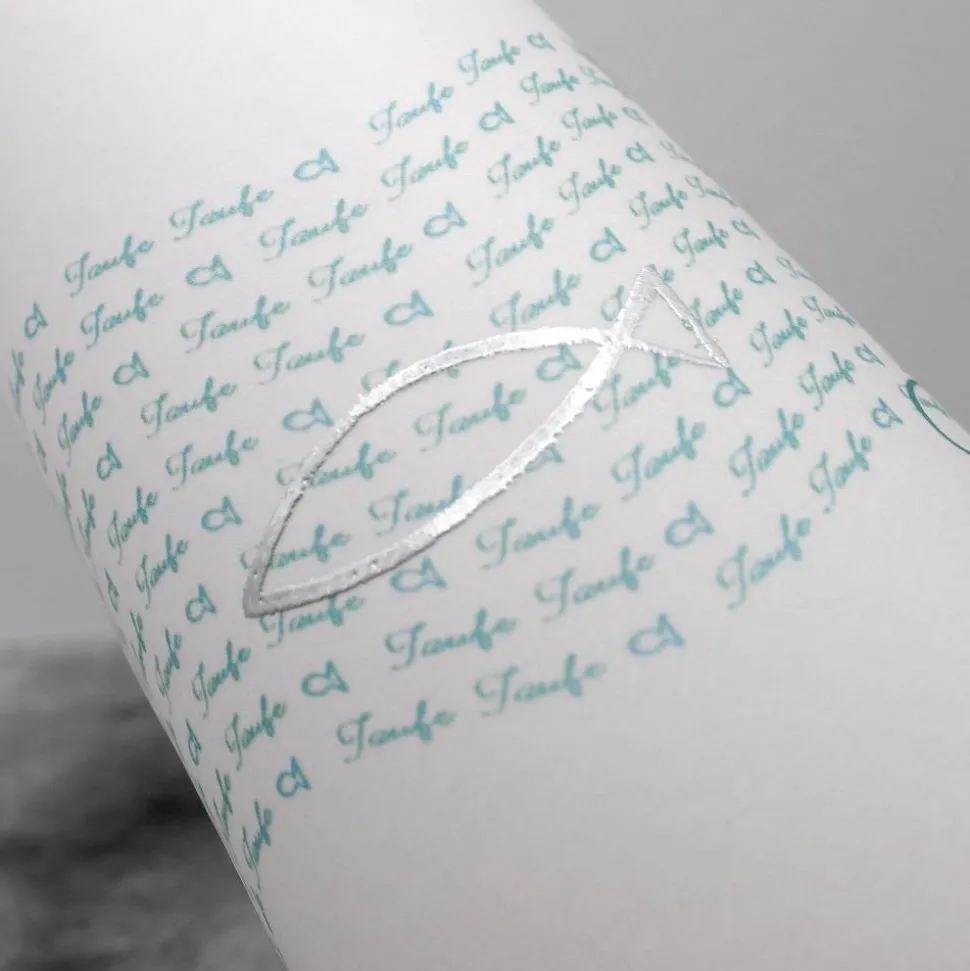 Taufe Taufe Taufe Taufe
Taufe Taufe Taufe Taufe Taufe
Taufe Taufe Taufe Taufe Taufe
Taufe Taufe Taufe Taufe
Taufe Taufe Taufe Taufe Taufe
Taufe Taufe Taufe Taufe Taufe
Taufe Taufe Taufe Taufe
Taufe Taufe Taufe Taufe Taufe Taufe
Taufe Taufe Taufe Taufe Taufe
Taufe Taufe Taufe Taufe Taufe